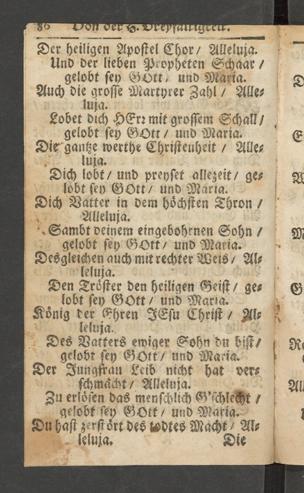 86 Von der H. Dreyfaltigkeit.
Der heiligen Apostel Chor / Alleluja.
Und der lieben Propheten Schaar /
gelobt sey GOtt / und Maria.
Auch die grosse Martyrer Zahl / Alle-
luja.
Lobet dich HErr mit grossem Schall /
gelobt sey GOtt / und Maria.
Die gantze werthe Christenheit / Alle-
luja.
Dich lobt / und preyset allezeit / ge-
lobt sey GOtt / und Maria.
Dich Vatter in dem höchsten Thron /
Alleluja.
Sambt deinem eingebohrnen Sohn /
gelobt sey GOtt / und Maria.
Desgleichen auch mit rechter Weis / Al-
leluja.
Den Tröster den heiligen Geist / ge-
lobt sey GOtt / und Maria.
König der Ehren JEsu Christ / Al-
leluja.
Des Vatters ewiger Sohn du bist /
gelobt sey GOtt / und Maria.
Der Jungfrau Leib nicht hat ver-
schmächt / Alleluja.
Zu erlösen das menschlich G'schlecht /
gelobt sey GOtt / und Maria.
Du hast zerstört des todtes Macht / Al-
leluja. Die